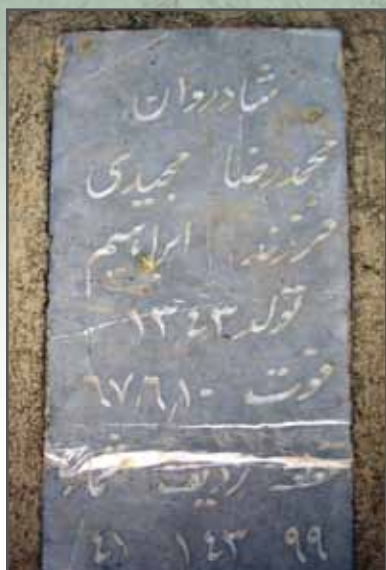 شادروان
محمدرضا مجیدی
فرزند ابراهیم
تولد ۱۳۴۳
فوت ۶۷٫۶٫۱۰
قطعه ردیف شماره
۹۹ ۱۴۳ ۴۱